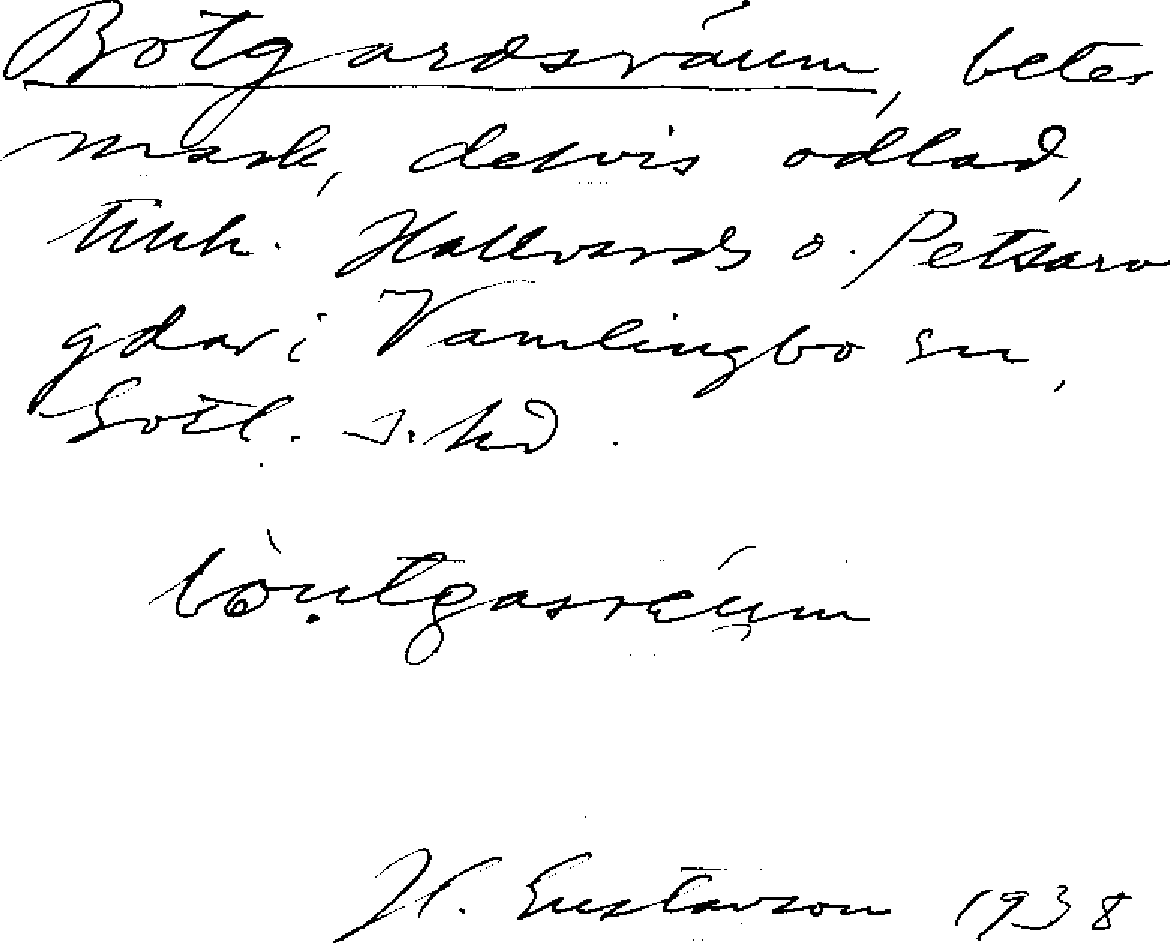 Botgardsráum, betes
mark, delvis odlad,
tillh. Hallvards o. Petsarv
gdar i Vamlingbo sn,
Gotl. s. hd.
bò̤utgasráum
H. Gustavson 1938